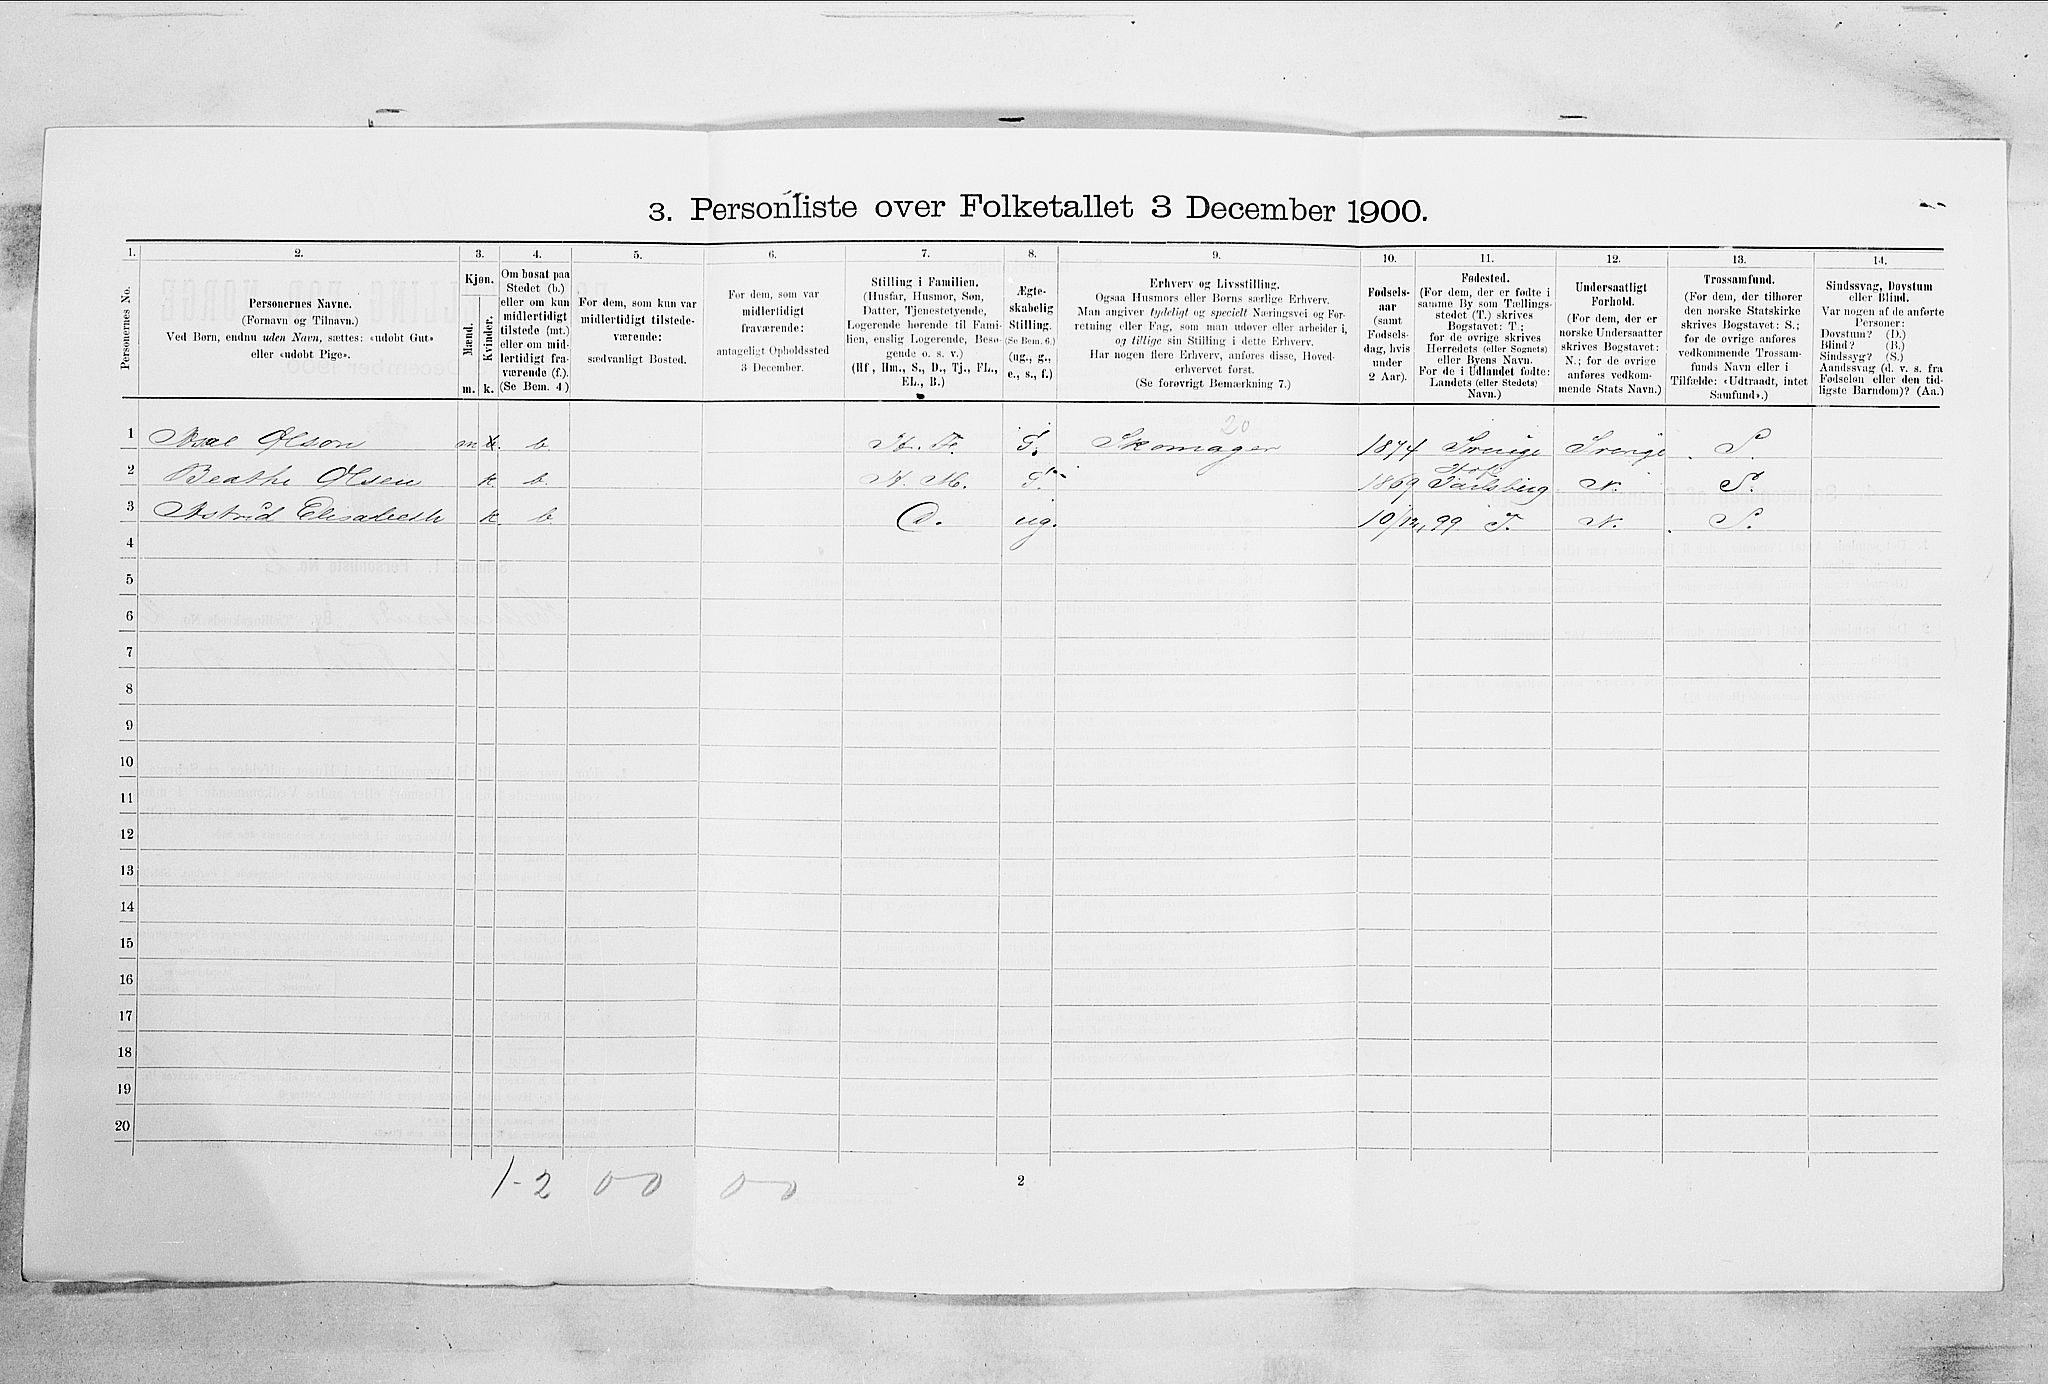 3. Personliste over Folketallet 3 December 1900.
1. 2. 3. 4. 5. 6. 7. 8. 9. 10. 11. 12. 13. 14.
Personernes No.
Personernes Navne.
(Fornavn og Tilnavn.)
Ved Børn, endnu uden Navn, sættes: «udøbt Gut»
eller «udøbt Pige».
Kjøn.
Mænd.
Kvinder.
m. k.
Om bosat paa
Stedet (b.)
eller om kun
midlertidigt
tilstede (mt.)
eller om mid-
lertidigt fra-
værende (f.).
(Se Bem. 4)
For dem, som kun var
midlertidigt tilstede-
værende:
sædvanligt Bosted.
For dem, som var
midlertidigt
fraværende:
antageligt Opholdssted
3 December.
Stilling i Familien.
(Husfar, Husmor, Søn,
Datter, Tjenestetyende,
Logerende hørende til Fami-
lien, enslig Logerende, Besø-
gende o. s. v.)
(Hf, Hm., S., D., Tj., FL.,
EL., B.)
Ægte-
skabelig
Stilling.
(Se Bem. 6.)
(ug., g.,
e., s., f.)
Erhverv og Livsstilling.
Ogsaa Husmors eller Børns særlige Erhverv.
Man angiver tydeligt og specielt Næringsvei og For-
retning eller Fag, som man udøver eller arbeider i,
og tillige sin Stilling i dette Erhverv.
Har nogen flere Erhverv, anføres disse, Hoved-
erhvervet først.
(Se forøvrigt Bemærkning 7.)
Fødsels-
aar
(samt
Fødsels-
dag, hvis
under
2 Aar).
Fødested.
(For dem, der er fødte i
samme By som Tællings-
stedet (T.) skrives
Bogstavet: T;
for de øvrige skrives
Herredets (eller Sognets)
eller Byens Navn.
For de i Udlandet fødte:
Landets (eller Stedets)
Navn.)
Undersaatligt
Forhold.
(For dem, der er
norske Undersaatter
skrives Bogstavet:
N.; for de øvrige
anføres vedkom-
mende Stats Navn.)
Trossamfund.
(For dem, der tilhører
den norske Statskirke
skrives Bogstavet: S.;
for de øvrige anføres
vedkommende Trossam-
funds Navn eller i
Tilfælde: «Udtraadt, intet
Samfund».)
Sindssvag, Døvstum
eller Blind.
Var nogen af de anførte
Personer:
Døvstum? (D.)
Blind? (B.)
Sindssyg? (S.)
Aandssvag (d. v. s. fra
Fødselen eller den tid-
ligste Barndom)? (Aa.)
20
1 Olson m b. H. F. G. Skomager 1874 Sverige Sverige S.
2 Beathe Olsen k b. H. M. G. 1869 Jarlsberg N. S.
3 Astrid Elisabeth k b D. ug. 10/12, 99 T. N. S.
4
5
6
7
8
9
10
11
12
13
14
15
16
17
18
19
20
1-2 00 00
2